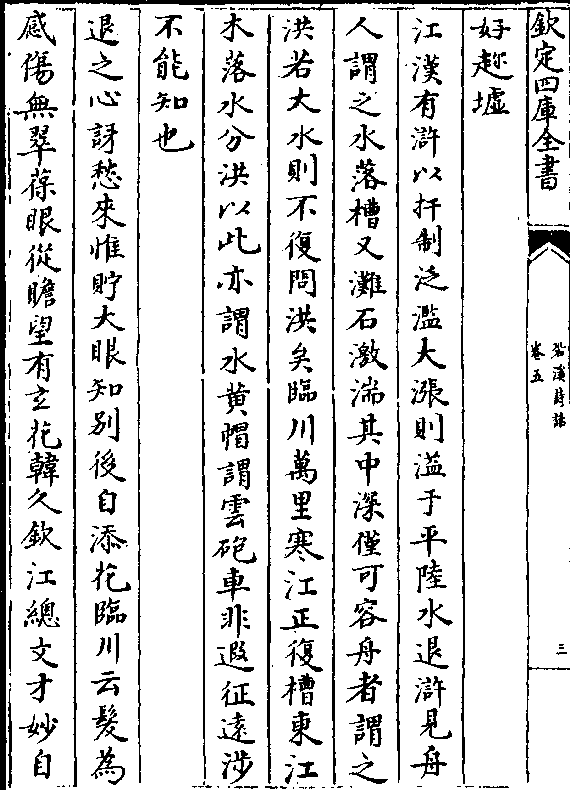 欽定四庫全書
卷五
三
好趂墟
江漢有滸以扞制泛濫大漲則溢于平陸水退滸見舟
人謂之水落槽又灘石激湍其中深僅可容舟者謂之
洪若大水則不復問洪矣臨川萬里寒江正復槽東江
木落水分洪以此亦謂水黄帽謂雲砲車非遐征遠涉
不能知也
退之心訝愁來惟貯大眼知别後自添花臨川云髪為
感傷無翠葆眼從瞻望有玄花韓久欽江總文才妙自